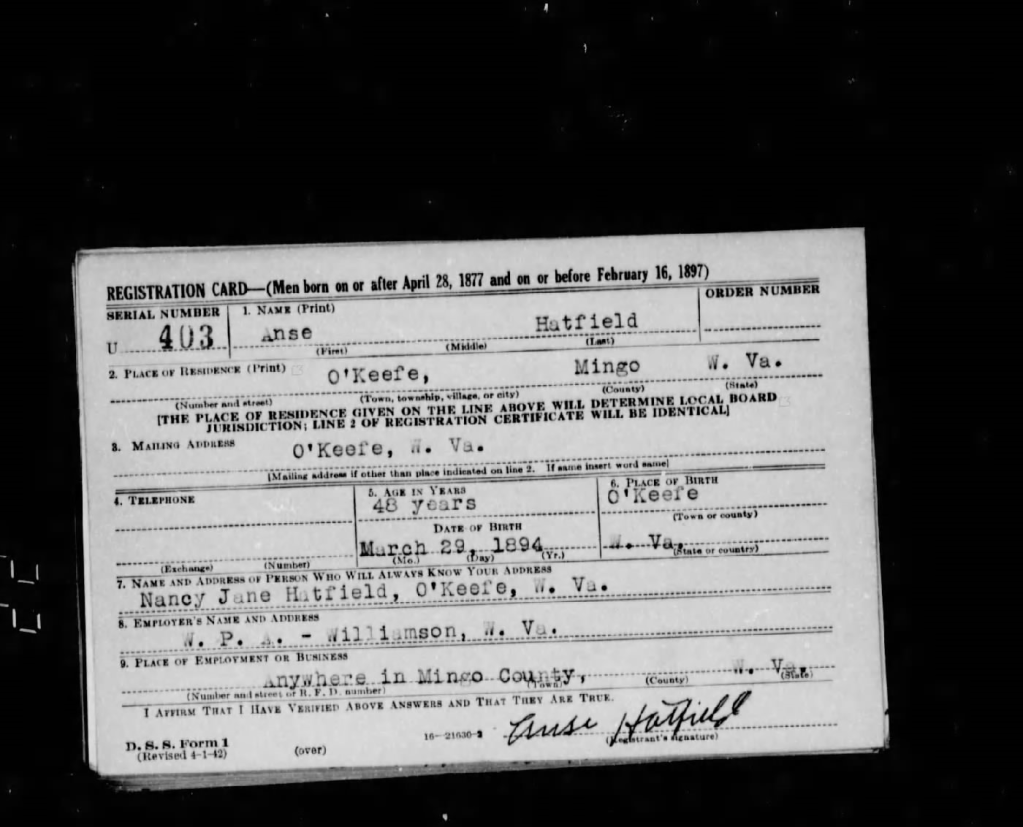 REGISTRATION CARD—(Men born on or after April 28, 1877 and on or before February 16, 1897)
SERIAL NUMBER 1. NAME (Print) ORDER NUMBER
U 403 Anse Hatfield
(First) (Middle) (Last)
2. PLACE OF RESIDENCE (Print) O'Keefe, Mingo W. Va.
(Number and street) (Town, township, village, or city) (County) (State)
[THE PLACE OF RESIDENCE GIVEN ON THE LINE ABOVE WILL DETERMINE LOCAL BOARD
JURISDICTION; LINE 2 OF REGISTRATION CERTIFICATE WILL BE IDENTICAL]
3. MAILING ADDRESS O'Keefe, W. Va.
[Mailing address if other than place indicated on line 2. If same insert word same]
4. TELEPHONE 5. AGE IN YEARS 6. PLACE OF BIRTH
48 years O'Keefe
DATE OF BIRTH (Town or county)
March 29, 1894 W. Va.
(Exchange) (Number) (Mo.) (Day) (Yr.) (State or country)
7. NAME AND ADDRESS OF PERSON WHO WILL ALWAYS KNOW YOUR ADDRESS
Nancy Jane Hatfield, O'Keefe, W. Va.
8. EMPLOYER'S NAME AND ADDRESS
W. P. A. - Williamson, W. Va.
9. PLACE OF EMPLOYMENT OR BUSINESS
Anywhere in Mingo County, W. Va.
(Number and street or R. F. D. number) (Town) (County) (State)
I AFFIRM THAT I HAVE VERIFIED ABOVE ANSWERS AND THAT THEY ARE TRUE.
D. S. S. Form 1 16—21630-2 Anse Hatfield
(Revised 4-1-42) (over) (Registrant's signature)